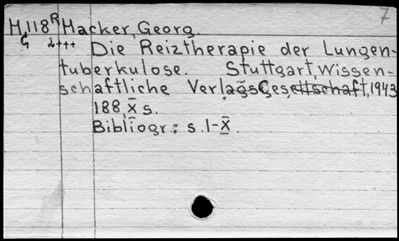 7
H,118R Hacker, Georg.
G 2+++ Die Reiztherapie der Lungen-
tuberkulose. Stuttgart, Wissen-
schaftliche Verlags Gesellschaft, 1943
188, X s.
Bibliogr.: s. I-X.